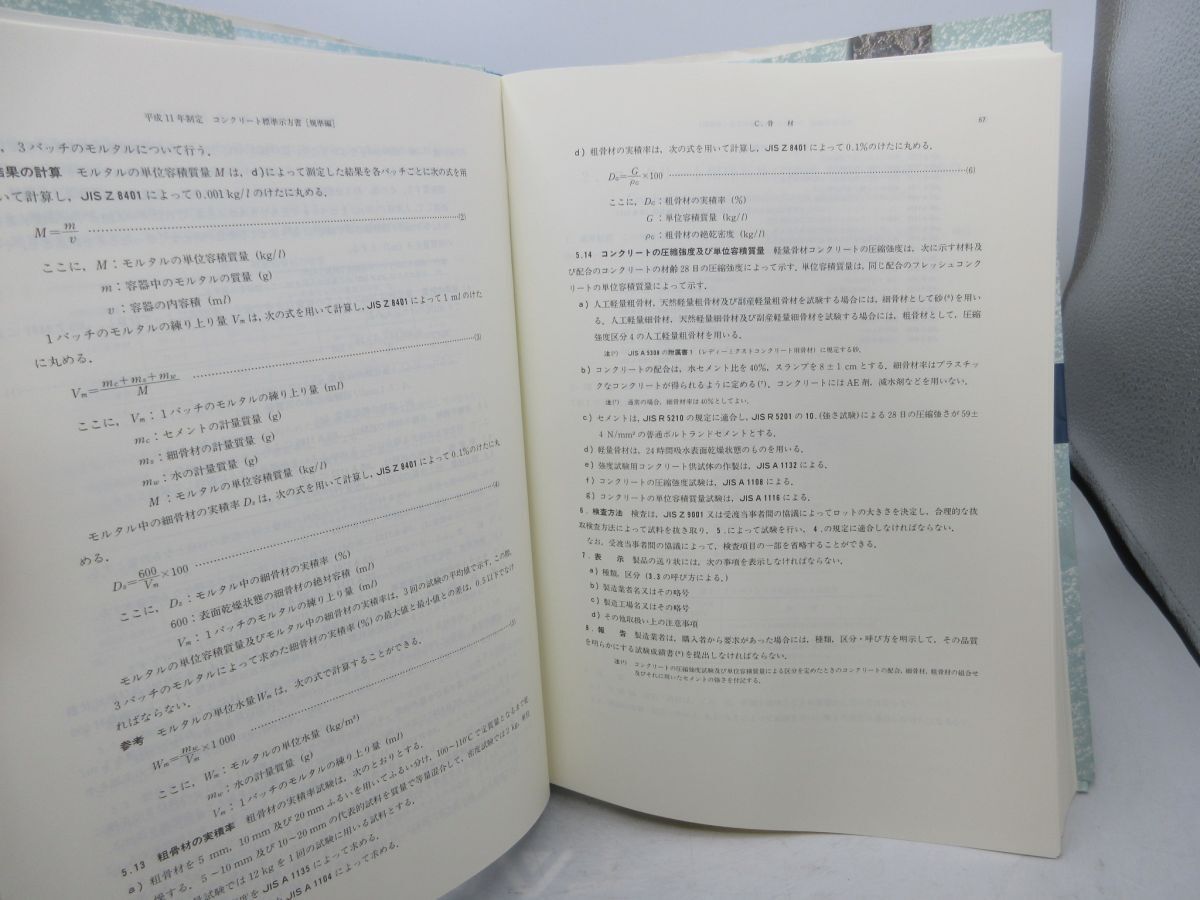 平成11年制定 コンクリート標準示方書[規準編]
，3バッチのモルタルについて行う．
結果の計算 モルタルの単位容積質量Mは，d)によって測定した結果を各バッチごとに次の式を用
いて計算し，JIS Z 8401によって0.001 kg/lのけたに丸める．
M=m/v ……(2)
ここに，M：モルタルの単位容積質量 (kg/l)
m：容器中のモルタルの質量 (g)
v：容器の内容積 (ml)
1バッチのモルタルの練り上り量Vmは，次の式を用いて計算し，JIS Z 8401によって1 mlのけた
に丸める．
Vm=(mc+ms+mw)/M ……(3)
ここに，Vm：1バッチのモルタルの練り上り量 (ml)
mc：セメントの計量質量 (g)
ms：細骨材の計量質量 (g)
mw：水の計量質量 (g)
M：モルタルの単位容積質量 (kg/l)
モルタル中の細骨材の実積率Dsは，次の式を用いて計算し，JIS Z 8401によって0.1%のけたに丸
める．
Ds=600/Vm×100 ……(4)
ここに，Ds：モルタル中の細骨材の実積率 (%)
600：表面乾燥状態の細骨材の絶対容積 (ml)
Vm：1バッチのモルタルの練り上り量 (ml)
モルタルの単位容積質量及びモルタル中の細骨材の実積率は，3回の試験の平均値で示す．この際，
3バッチのモルタルによって求めた細骨材の実積率(%)の最大値と最小値との差は，0.5以下でなけ
ればならない．
参考 モルタルの単位水量Wmは，次の式で計算することができる．
Wm=mw/Vm×1 000 ……(5)
ここに，Wm：モルタルの単位水量 (kg/m³)
mw：水の計量質量 (g)
Vm：1バッチのモルタルの練り上り量 (ml)
5.13 粗骨材の実積率 粗骨材の実積率試験は，次のとおりとする．
a) 粗骨材を5 mm，10 mm及び20 mmふるいを用いてふるい分け，100〜110℃で定質量となるまで乾
燥する．5〜10 mm及び10〜20 mmの代表的試料を質量で等量混合して，密度試験では2 kg，単位
量試験では12 kgを1回の試験に用いる試料とする．
度をJIS A 1135によって求める．
JIS A 1104によって求める．
C．骨 材
67
d) 粗骨材の実積率は，次の式を用いて計算し，JIS Z 8401によって0.1%のけたに丸める．
DG=G/ρG×100 ……(6)
ここに，DG：粗骨材の実積率 (%)
G：単位容積質量 (kg/l)
ρG：粗骨材の絶乾密度 (kg/l)
5.14 コンクリートの圧縮強度及び単位容積質量 軽量骨材コンクリートの圧縮強度は，次に示す材料及
び配合のコンクリートの材齢28日の圧縮強度によって示す．単位容積質量は，同じ配合のフレッシュコンク
リートの単位容積質量によって示す．
a) 人工軽量粗骨材，天然軽量粗骨材及び副産軽量粗骨材を試験する場合には，細骨材として砂(⁶)を用い
る．人工軽量細骨材，天然軽量細骨材及び副産軽量細骨材を試験する場合には，粗骨材として，圧縮
強度区分4の人工軽量粗骨材を用いる．
JIS A 5308の附属書1（レディーミクストコンクリート用骨材）に規定する砂．
b) コンクリートの配合は，水セメント比を40%，スランプを8±1 cmとする．細骨材率はプラスチッ
クなコンクリートが得られるように定める(⁷)．コンクリートにはAE剤，減水剤などを用いない．
通常の場合，細骨材率は40%としてよい．
c) セメントは，JIS R 5210の規定に適合し，JIS R 5201の10.(強さ試験)による28日の圧縮強さが59±
4 N/mm²の普通ポルトランドセメントとする．
d) 軽量骨材は，24時間吸水表面乾燥状態のものを用いる．
e) 強度試験用コンクリート供試体の作製は，JIS A 1132による．
f) コンクリートの圧縮強度試験は，JIS A 1108による．
g) コンクリートの単位容積質量試験は，JIS A 1116による．
6．検査方法 検査は，JIS Z 9001又は受渡当事者間の協議によってロットの大きさを決定し，合理的な抜
取検査方法によって試料を抜き取り，5.によって試験を行い，4.の規定に適合しなければならない．
なお，受渡当事者間の協議によって，検査項目の一部を省略することができる．
7．表 示 製品の送り状には，次の事項を表示しなければならない．
a) 種類，区分 (3.3の呼び方による．)
b) 製造業者名又はその略号
c) 製造工場名又はその略号
d) その他取扱い上の注意事項
8．報 告 製造業者は，購入者から要求があった場合には，種類，区分・呼び方を明示して，その品質
を明らかにする試験成績書(⁸)を提出しなければならない．
コンクリートの圧縮強度試験及び単位容積質量による区分を定めたときのコンクリートの配合，細骨材，粗骨材の組合せ
及びそれに用いたセメントの強さを付記する．